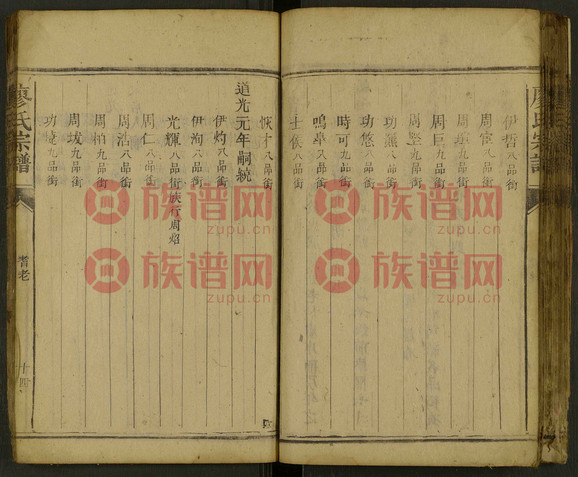 廖氏宗譜
伊哲八品銜
周宸八品銜
周琡九品銜
周巨九品銜
周堅九品銜
功燕八品銜
功悠八品銜
時可九品銜
鳴皋八品銜
士俟八品銜
恢才八品銜
道光元年嗣続
伊灼八品銜
伊洵八品銜
光輝八品銜恢行周炤
周仁八品銜
周浩八品銜
周柏九品銜
周坺九品銜
九品銜
廖氏宗譜
耆老
十四
族谱网
zupu.cn
族谱网
zupu.cn
族谱网
zupu.cn
族谱网
zupu.cn